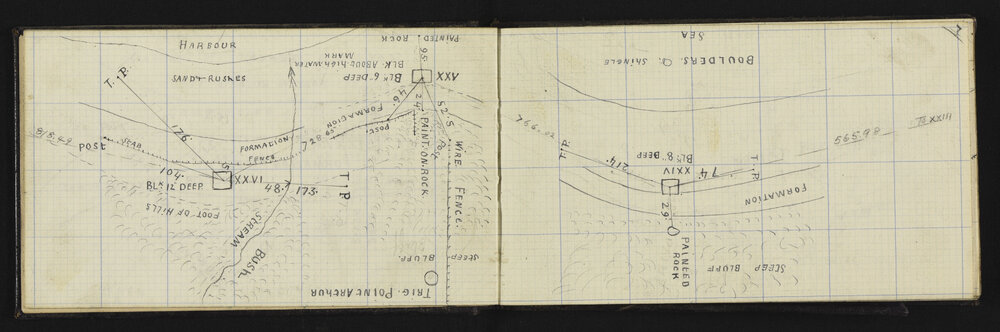 HARBOUR
SAND & RUSHES
T. P.
176.
818.49
POST
104.
BLK 12" DEEP
XXVI
S
FORMATION
FENCE
728.65
48.
173.
T. P.
FOOT OF HILLS
STREAM
BUSH
PAINTED. ROCK
95.
BLK ABOVE HIGH WATER
MARK
BLK 6 DEEP
XXV
46.
24.
52.5
FORMATION
POST.
PAINT. ON. ROCK
WIRE FENCE.
STEEP
BLUFF.
TRIG. POINT ARTHUR
7
SEA
BOULDERS & SHINGLE
766.02
T. P.
214.
BLK 8 DEEP
XXIV
T. P.
74.
565.98
To XXIII
29.
FORMATION
PAINTED
ROCK
STEEP
BLUFF